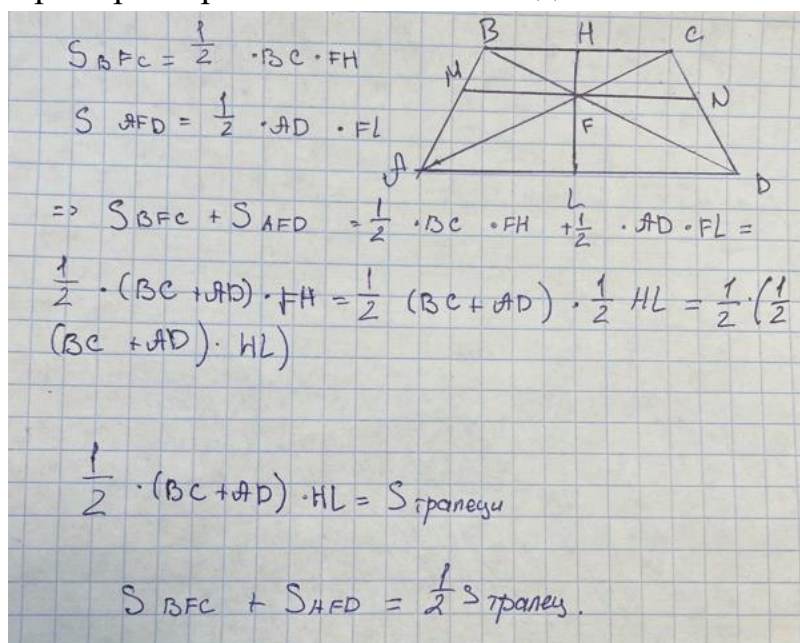 S BFC = 1/2 · BC · FH
S AFD = 1/2 · AD · FL
B H C
M N
F
A D
L
=> S BFC + S AFD = 1/2 · BC · FH + 1/2 · AD · FL =
1/2 · (BC + AD) · FH = 1/2 (BC + AD) · 1/2 HL = 1/2 · (1/2
(BC + AD) · HL)
1/2 · (BC + AD) · HL = S трапеци
S BFC + S AFD = 1/2 S трапец.